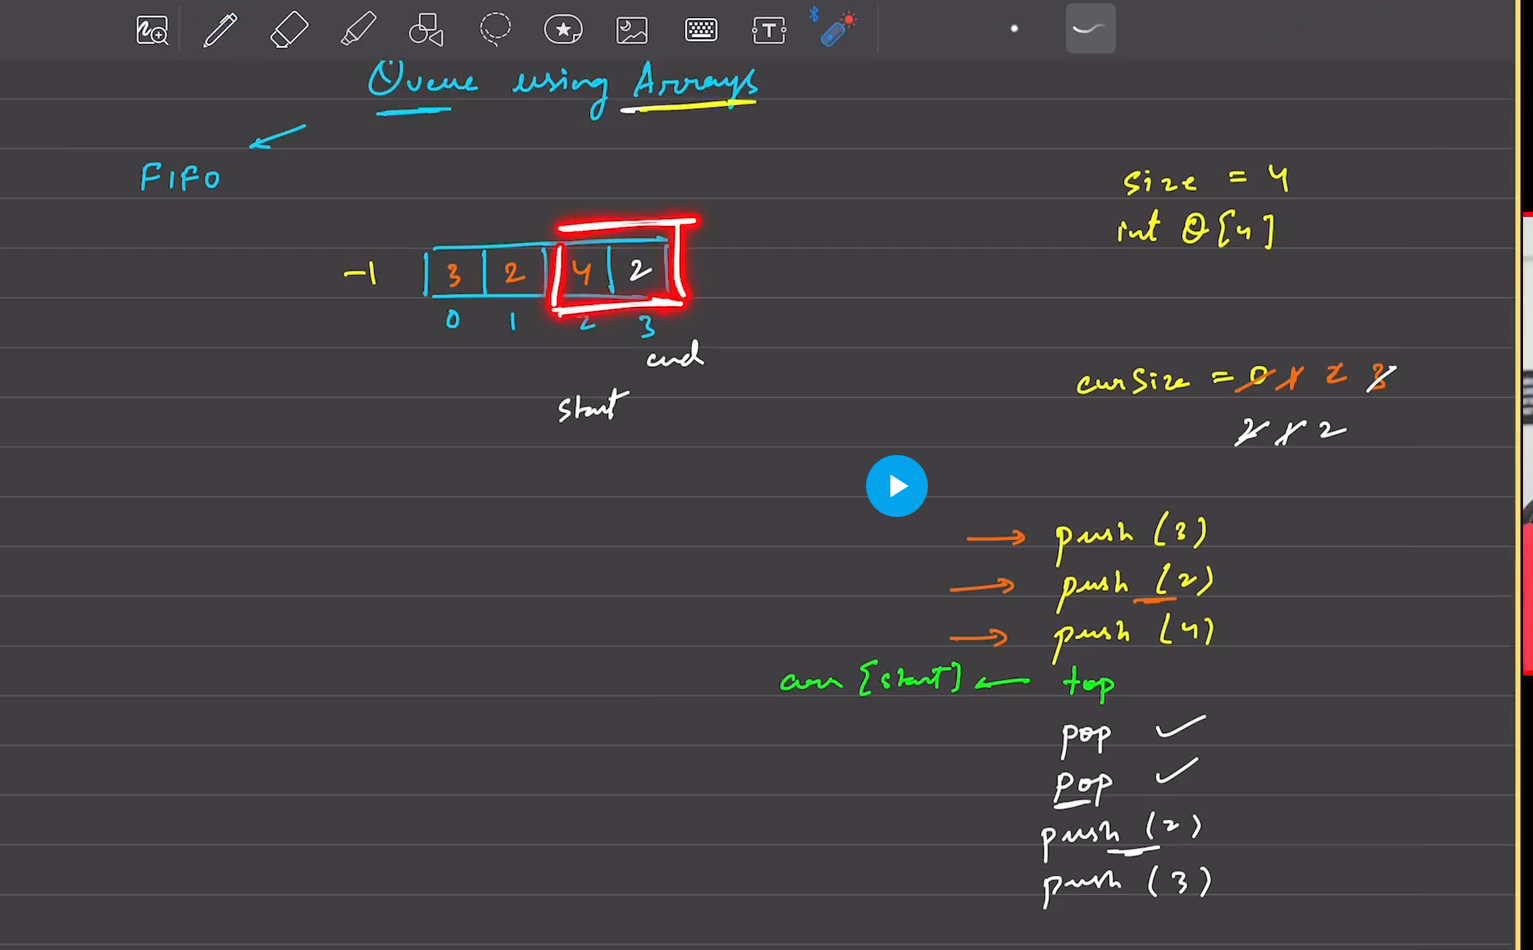 Queue using Arrays
FIFO
size = 4
int Q[4]
-1 3 2 4 2
0 1 2 3
end
start
currSize = 0 1 2 3
2 1 2
push (3)
push (2)
push (4)
arr [start] ← top
pop ✓
pop ✓
push (2)
push (3)